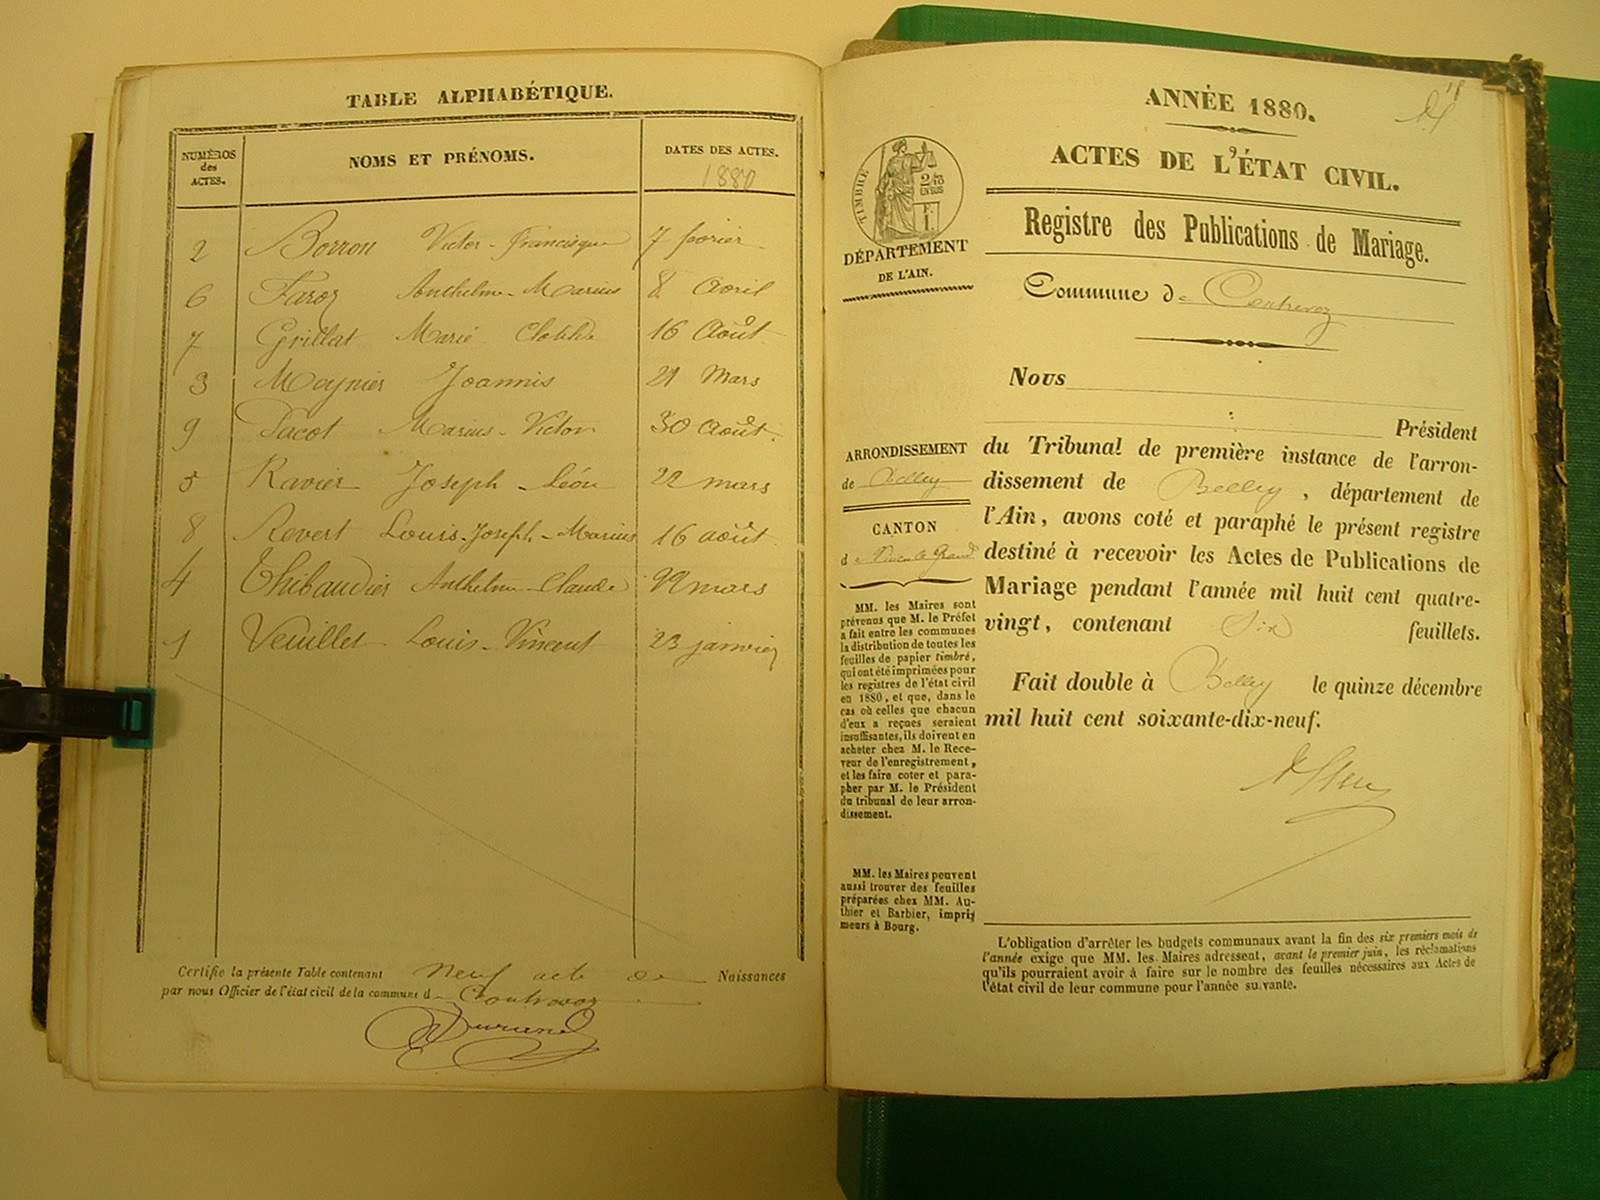 TABLE ALPHABÉTIQUE.
NUMÉROS des ACTES.
NOMS ET PRÉNOMS.
DATES DES ACTES.
1880
2 Borron Victor-Francisque 7 février
6 Faroz Anthelme-Marius 8 Avril
7 Grillat Marie Clotilde 16 Août
3 Moynier Joannis 21 Mars
9 Pacot Marius-Victor 30 Août.
5 Ravier Joseph-Léon 22 mars
8 Revert Louis-Joseph-Marius 16 août
4 Thibaudier Anthelme-Claude 22 mars
1 Veuillet Louis-Vincent 23 janvier
Certifie la présente Table contenant Neuf acte de Naissances
par nous Officier de l'état civil de la commune d Contrevoz
ANNÉE 1880.
ACTES DE L'ÉTAT CIVIL.
Registre des Publications de Mariage.
Commune de Contrevoz
TIMBRE
2/10
EN SUS
F.
1.
DÉPARTEMENT
DE L'AIN.
ARRONDISSEMENT
de Belley
CANTON
d
MM. les Maires sont
prévenus que M. le Préfet
a fait entre les communes
la distribution de toutes les
feuilles de papier timbré,
qui ont été imprimées pour
les registres de l'état civil
en 1880, et que, dans le
cas où celles que chacun
d'eux a reçues seraient
insuffisantes, ils doivent en
acheter chez M. le Rece-
veur de l'enregistrement,
et les faire coter et para-
pher par M. le Président
du tribunal de leur arron-
dissement.
MM. les Maires peuvent
aussi trouver des feuilles
préparées chez MM. Au-
thier et Barbier, impri-
meurs à Bourg.
Nous
Président
du Tribunal de première instance de l'arron-
dissement de Belley, département de
l'Ain, avons coté et paraphé le présent registre
destiné à recevoir les Actes de Publications de
Mariage pendant l'année mil huit cent quatre-
vingt, contenant Six feuillets.
Fait double à Belley le quinze décembre
mil huit cent soixante-dix-neuf.
L'obligation d'arrêter les budgets communaux avant la fin des six premiers mois de
l'année exige que MM. les Maires adressent, avant le premier juin, les réclamations
qu'ils pourraient avoir à faire sur le nombre des feuilles nécessaires aux Actes de
l'état civil de leur commune pour l'année suivante.